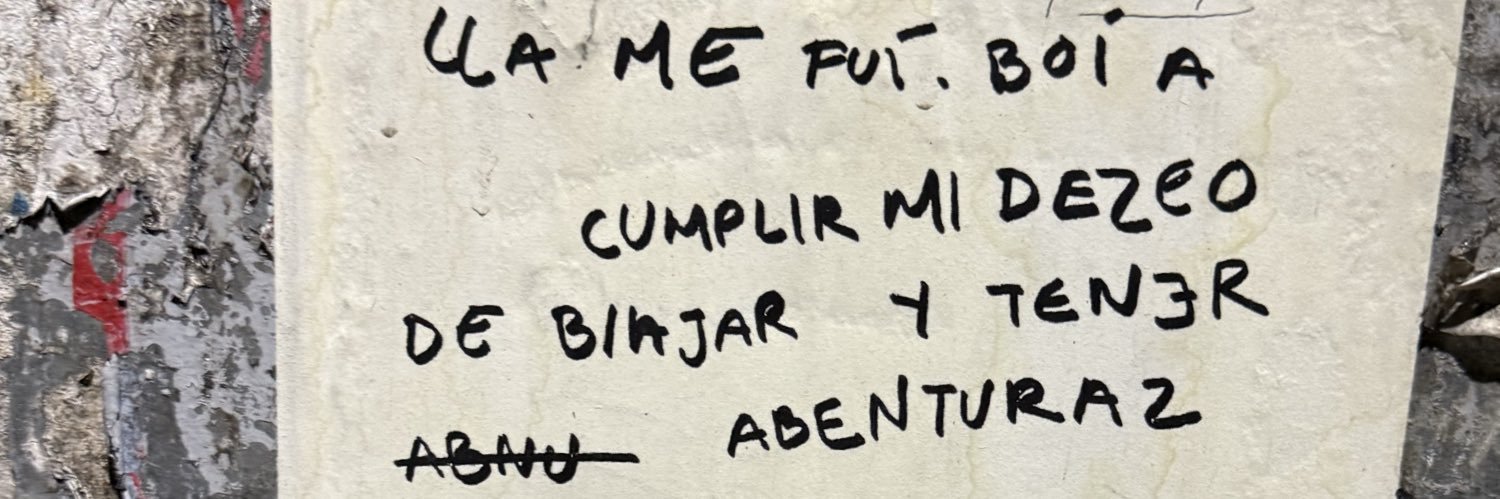 LLA ME FUÍ. BOI A
CUMPLIR MI DEZEO
DE BIAJAR Y TENER
ABNU ABENTURAZ